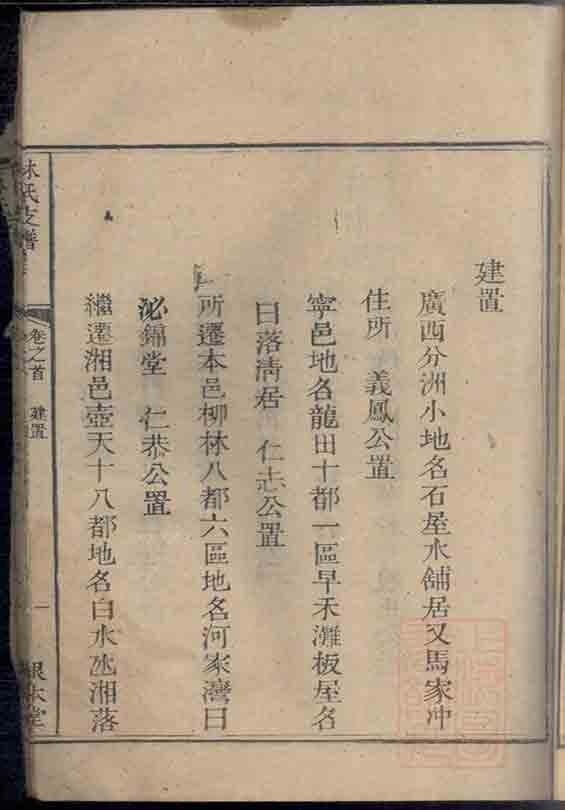 建置
廣西分洲小地名石屋水舖居又馬家冲
住所　義鳳公置
寧邑地名龍田十都一區早禾灘板屋名
曰落清居　仁志公置
所遷本邑柳林八都六區地名河家灣曰
泌錦堂　仁恭公置
繼遷湘邑壺天十八都地名白水氹湘落
林氏支譜
卷之首　建置
一
根本堂